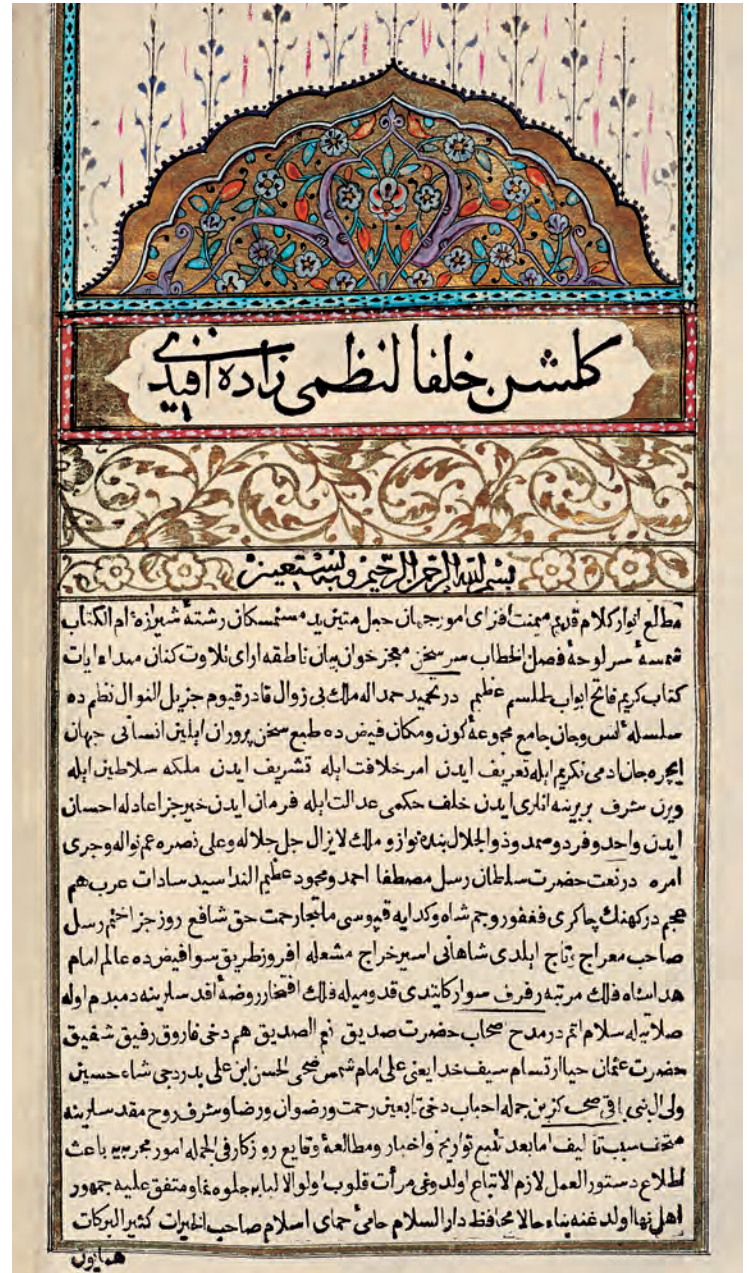 كلشن خلفا لنظمى زاده افندى
بسم الله الرحمن الرحيم وبه نستعين
مطالع انوار كلام قديم ميمنت افزاى امور جهان حبل متين يد مستمسكان رشتهٔ شيرازهٔ ام الكتاب
شمسهٔ سر لوحهٔ فصل الخطاب سر سخن معجز خوان بيان ناطقه اراى تلاوت كنان مبداء ايات
كتاب كريم فاتح ابواب طلسم عظيم در تحميد حمد اله ملك بى زوال قادر قيوم جزيل النوال نظم ده
سلسلهٔ انس وجان جامع مجموعهٔ كون ومكان فيض ده طبع سخن پروران ايلين انسانى جهان
ايچره جان ادمى تكريم ايله تعريف ايدن امر خلافت ايله تشريف ايدن ملكه سلاطين ايله
ويرن شرف بربرينه انلرى ايدن خلف حكمى عدالت ايله فرمان ايدن خير جزا عادله احسان
ايدن واحد وفرد وصمد وذو الجلال بنده نواز و ملك لايزال جل جلاله وعلى نصره عم نواله وجرى
امره در نعت حضرت سلطان رسل مصطفا احمد ومحمود عظيم الندا سيد سادات عرب هم
عجم دركهنك چاكرى فغفور وجم شاه وكدايه قپوسى ملتجا رحمت حق شافع روز جزا ختم رسل
صاحب معراج وتاج ايلدى شاهانى اسير خراج مشعله افروز طريق سوا فيض ده عالم امام
هدا شاه فلك مرتبه رفرف سوار كايتدى قدوميله فلك افتخار روضهٔ اقدسلرينه دمبدم اوله
صلاتيله سلام اتم در مدح صحاب حضرت صديق نعم الصديق هم دخى فاروق رفيق شفيق
حضرت عثمان حيا ارتسام سيف خدا يعنى على امام شمس ضحى الحسن ابن على بدر دجى شاه حسين
ولى ال نبى باقى صحب كزين جمله احباب دخى تابعين رحمت ورضوان ورضا وشرف روح مقدسلرينه
متحف سبب تاليف اما بعد تتبع تواريخ واخبار ومطالعهٔ وقايع روزكار فى الجمله امور مجربيه باعث
اطلاع دستور العمل لازم الاتباع اولدوغى مرأت قلوب اولو الالبابه جلوه نما ومتفق عليه جمهور
اهل نها اولدغنه بناء حالا محافظ دار السلام حامئ حماى اسلام صاحب الخيرات كثير البركات
همايون